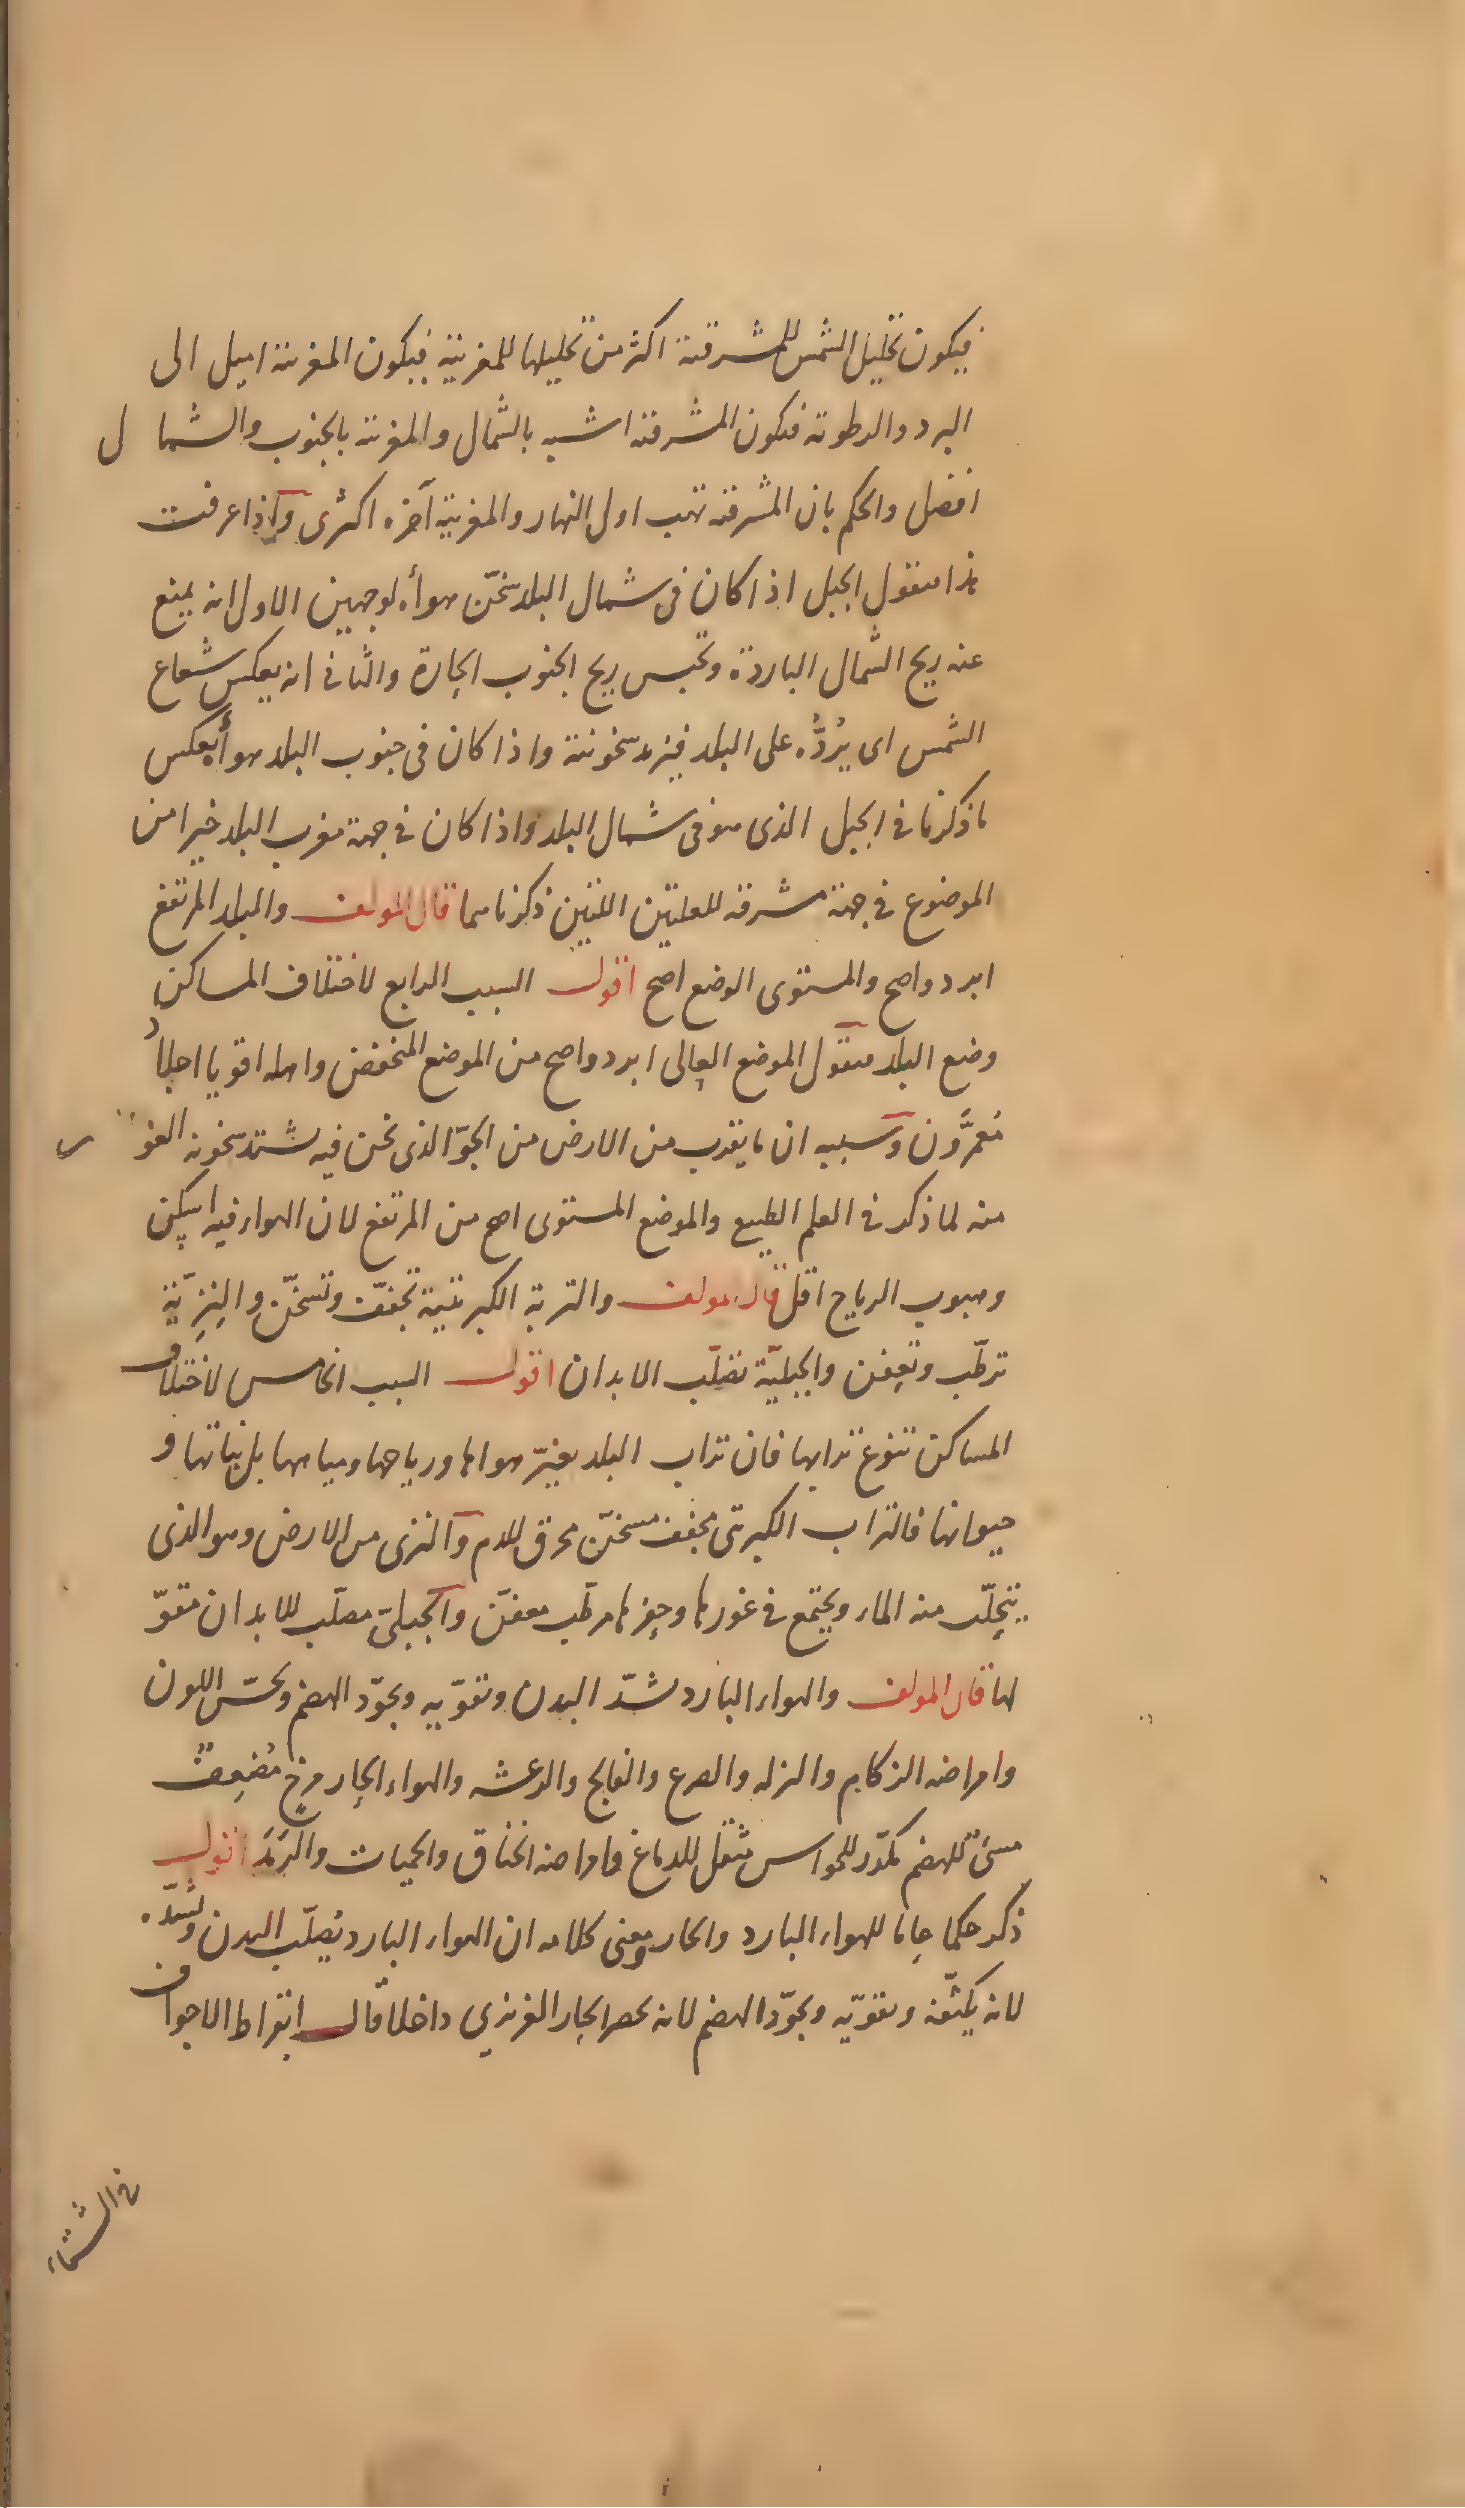 فيكون تحليل الشمس للمشرقية اكثر من تحليلها للمغربية فيكون المغربية اميل الى
البرد والرطوبة فيكون المشرقية اشبه بالشمال والمغربية بالجنوب والشمال
افضل والحكم بان المشرقية تهب اول النهار والمغربية آخره اكثرى واذا عرفت
هذا فنقول الجبل اذا كان فى شمال البلد سخّن هوأه لوجهين الاول انه يمنع
عنه ريح الشمال الباردة وتحبس ريح الجنوب الحارة والثانى انه يعكس شعاع
الشمس اى يُردُّه على البلد فيزيد سخونته واذا كان فى جنوب البلد هوأه بعكس
ما ذكرنا فى الجبل الذى هو فى شمال البلد واذا كان فى جهة مغرب البلد خيرا من
الموضوع فى جهة مشرقه للعلتين اللتين ذكرناهما قال المولف والبلد المرتفع
ابرد واصح والمستوى الوضع اصح اقول السبب الرابع لاختلاف المساكن
وضع البلد فنقول الموضع العالى ابرد واصح من الموضع المنخفض واهله اقويا اجلاد
مُعمَّرون وسببه ان ما يقرب من الارض من الجوّ الذى نحن فيه يشتد سخونه الغور
منه لما ذكر فى العلم الطبيع والموضع المستوى اصح من المرتفع لان الهواء فيه اسكن
وهبوب الرياح اقل قال المولف والتربة الكبريتية تجفّف وتسخّن والنِزِيّة
ترطّب وتعفن والجبليّة تصلّب الابدان اقول السبب الخامس لاختلاف
المساكن تنوع ترابها فان تراب البلد يغيّر هواها ورياحها ومياهها بل نباتها و
حيواتها فالتراب الكبريتى مجفف مسخّن محرق للدم والنزى من الارض وهو الذى
يتحلّب منه الماء ويجتمع فى غورها وحفرها مرطّب معفّن والجبلىّ مصلّب للابدان مقوّ
لها قال المولف والهواء البارد يشدّ البدن ويقوّيه ويجوّد الهضم ويحسّن اللون
وامراضه الزكام والنزله والصرع والفالج والرعشه والهواء الحار مرخٍ مُضعِفٌ
مسىٌ للهضم مكدّر للحواس مثقل للدماغ وامراضه الخناق والحميات والرَمَد اقول
ذكر حكما جاما للهواء البارد والحار ومعنى كلامه ان الهواء البارد يُصلّب البدن ويشدّه
لانه يكثّفه ويقوّيه ويجوّد الهضم لانه يحصر الحار الغريزى داخلا قال ابقراط الاجواف
فى الشتاء